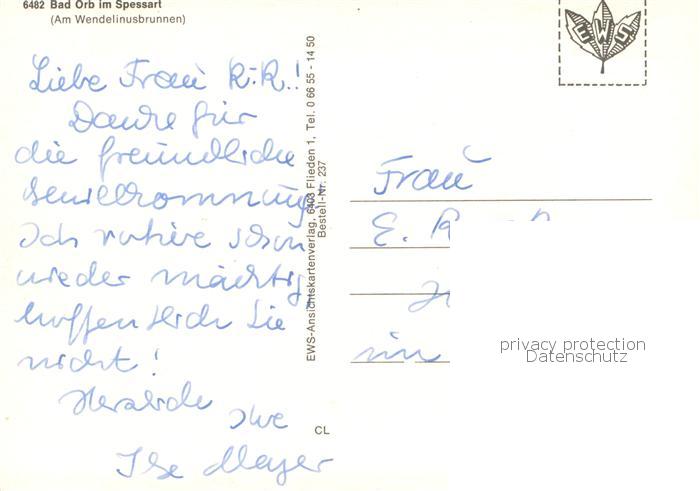 6482 Bad Orb im Spessart
(Am Wendelinusbrunnen)
EWS
Liebe Frau K.-R.!
Danke für
die freundliche
Bewillkommnung
Ich rotiere schon
wieder mächtig
hoffentlich Sie
nicht!
Herzliche Ihre
Ilse Mayer
EWS-Ansichtskartenverlag, 6403 Flieden 1, Tel. 0 66 55 - 14 50
Bestell-Nr. 237
CL
Frau
E. R
in
privacy protection
Datenschutz